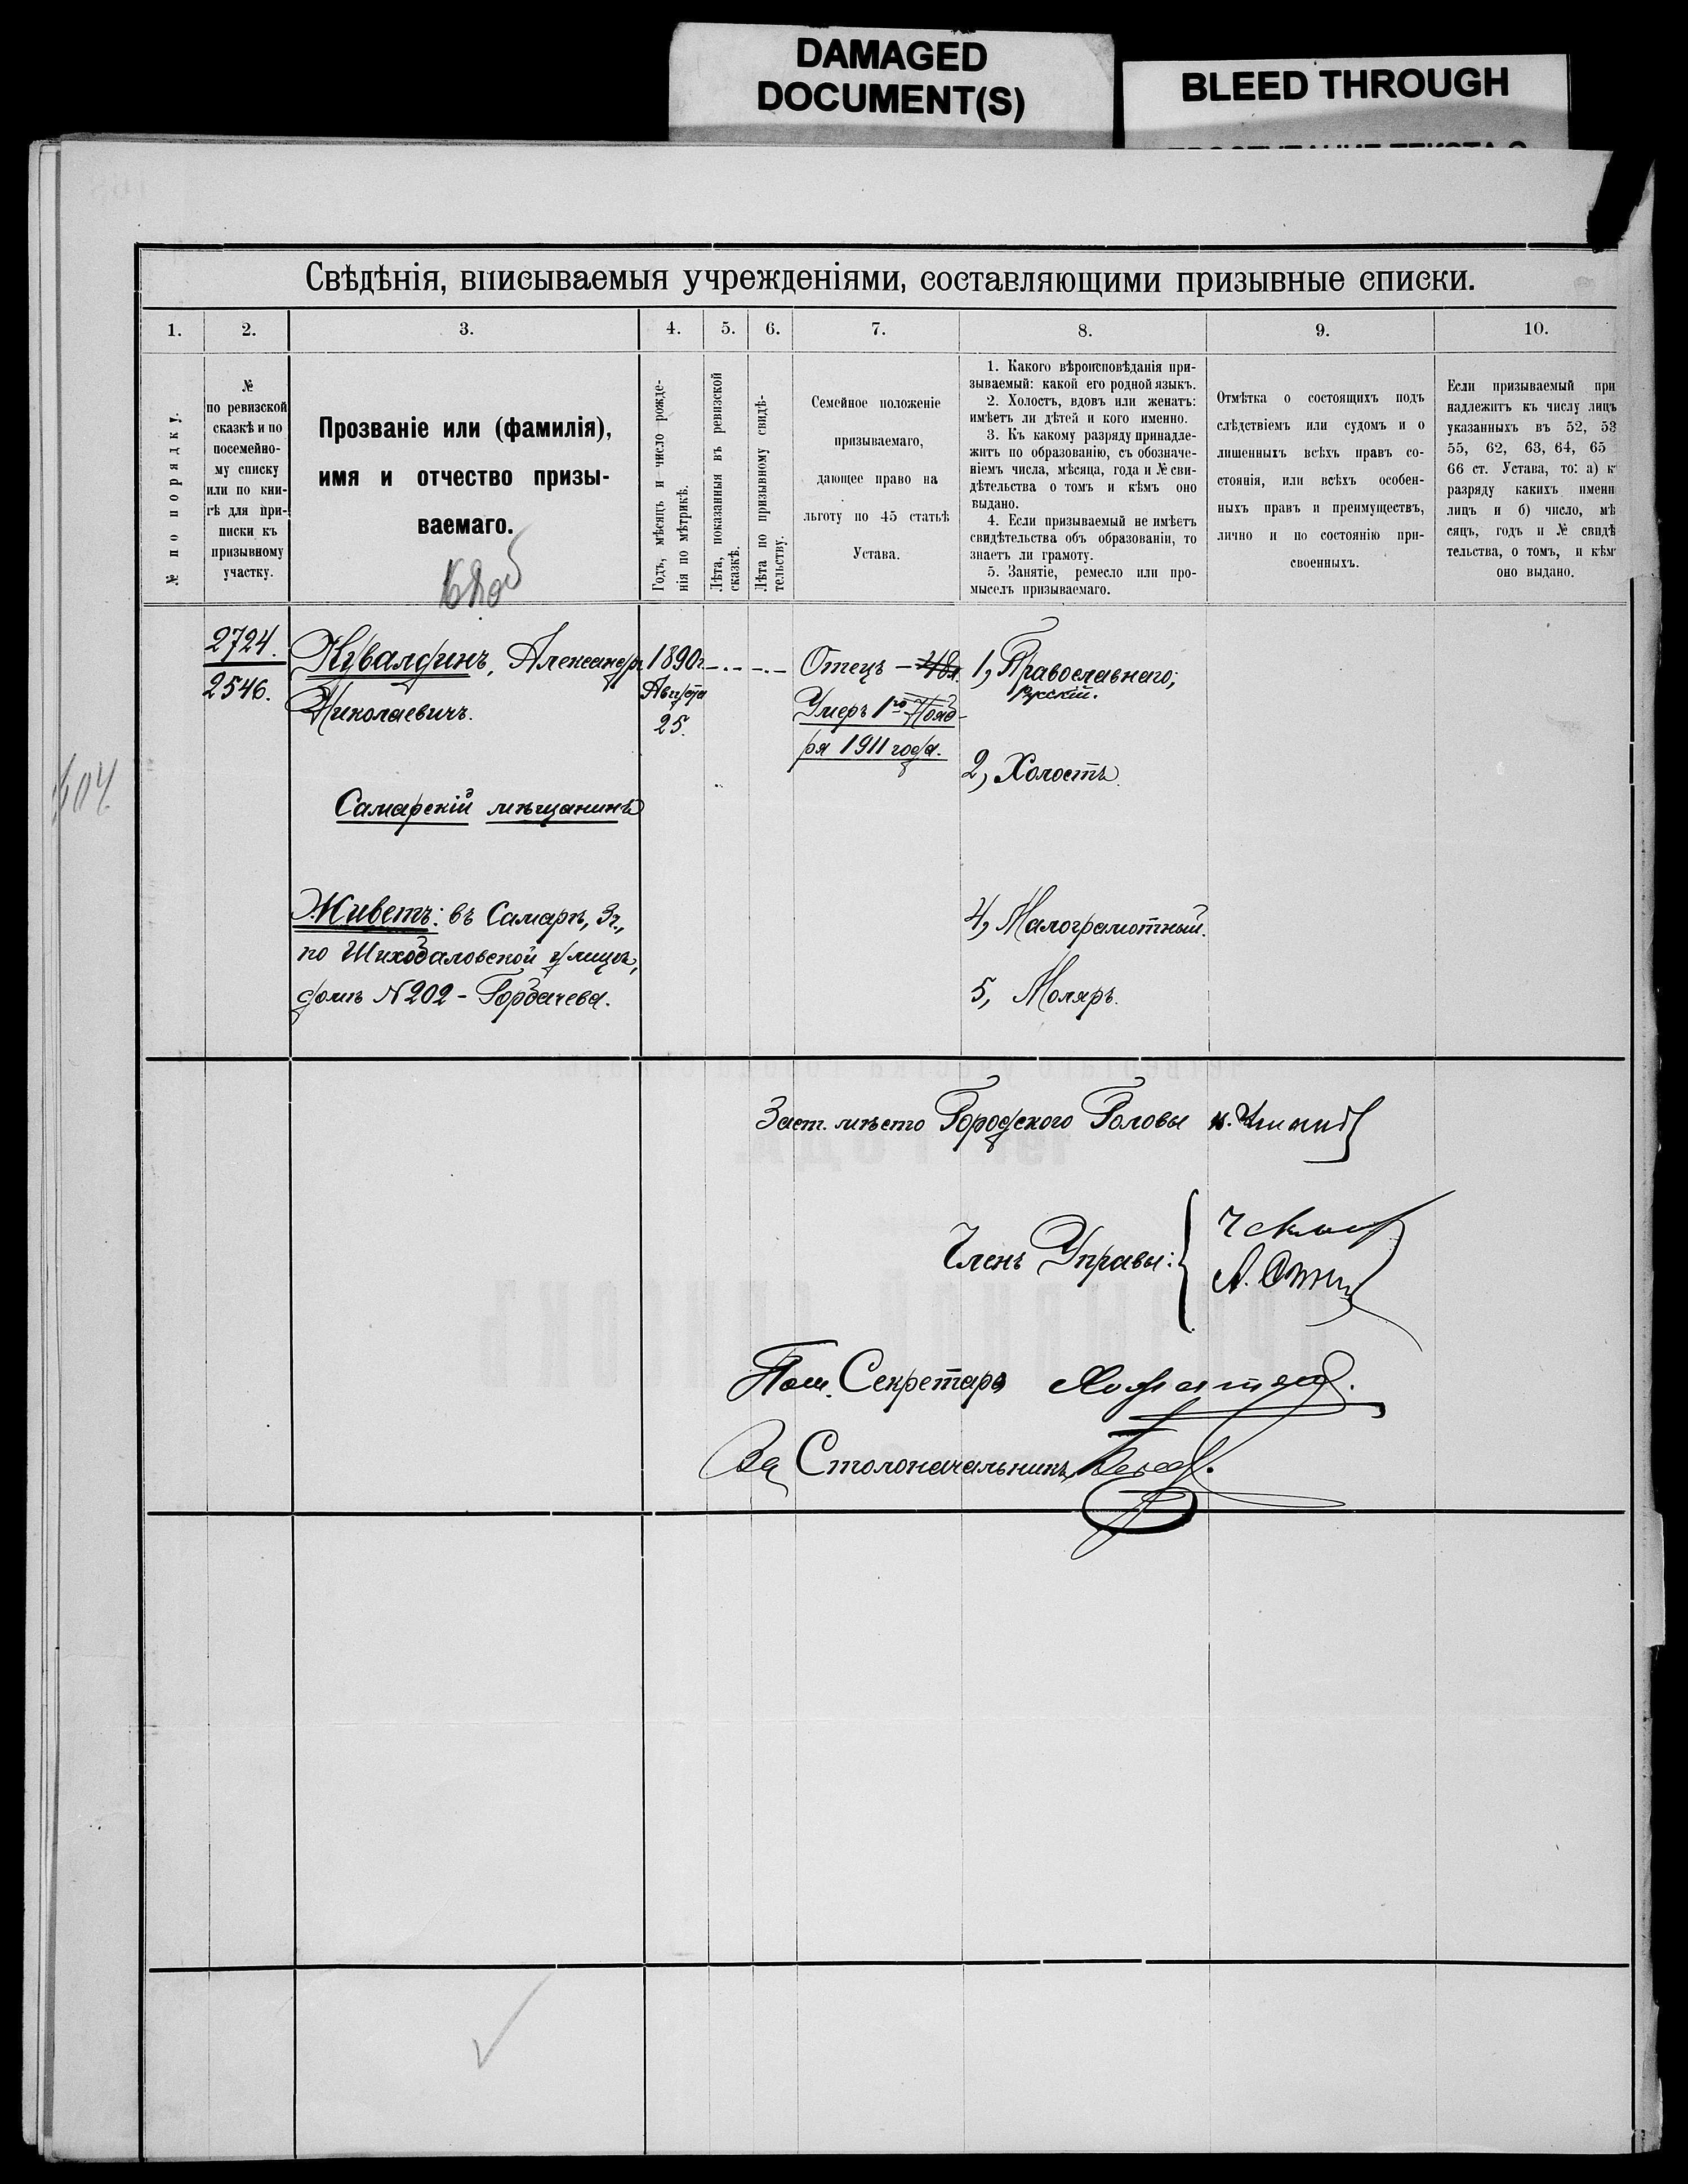 DAMAGED
DOCUMENT(S)
BLEED THROUGH
Свѣдѣнія, вписываемыя учрежденіями, составляющими призывные списки.
1.
2.
3.
4.
5.
6.
7.
8.
9.
10.
№ по порядку.
№
по ревизской
сказкѣ и по
посемейно-
му списку
или по кни-
гѣ для при-
писки къ
призывному
участку.
Прозваніе или (фамилія),
имя и отчество призы-
ваемаго.
Годъ, мѣсяцъ и число рожде-
нія по мѣтрикѣ.
Лѣта, показанныя въ ревизской
сказкѣ.
Лѣта по призывному свидѣ-
тельству.
Семейное положеніе
призываемаго,
дающее право на
льготу по 45 статьѣ
Устава.
1. Какого вѣроисповѣданія при-
зываемый: какой его родной языкъ.
2. Холостъ, вдовъ или женатъ:
имѣетъ ли дѣтей и кого именно.
3. Къ какому разряду принадле-
житъ по образованію, съ обозначе-
ніемъ числа, мѣсяца, года и № сви-
дѣтельства о томъ и кѣмъ оно
выдано.
4. Если призываемый не имѣетъ
свидѣтельства объ образованіи, то
знаетъ ли грамоту.
5. Занятіе, ремесло или про-
мыселъ призываемаго.
Отмѣтка о состоящихъ подъ
слѣдствіемъ или судомъ и о
лишенныхъ всѣхъ правъ со-
стоянія, или всѣхъ особен-
ныхъ правъ и преимуществъ,
лично и по состоянію при-
своенныхъ.
Если призываемый при
надлежитъ къ числу лицъ
указанныхъ въ 52, 53
55, 62, 63, 64, 65
66 ст. Устава, то: а) к
разряду какихъ именн
лицъ и б) число, мѣ
сяцъ, годъ и № свидѣ
тельства, о томъ, и кѣм
оно выдано.
2724.
2546.
Кувалдинъ, Александръ
Николаевичъ.
Самарскій мѣщанинъ
Живетъ: въ Самарѣ, 3 ч.,
по Шихобаловской улицѣ,
домъ № 202 - Горбачева.
1890 г.
Августа
25.
Отецъ - 48 л.
Умеръ 1го Нояб-
ря 1911 года.
1, Православнаго;
русскій.
2, Холостъ.
4, Малограмотный.
5, Моляръ.
404
Заст. мѣсто Городского Головы
Членъ Управы:
Пом. Секретаря
За Столоначальника